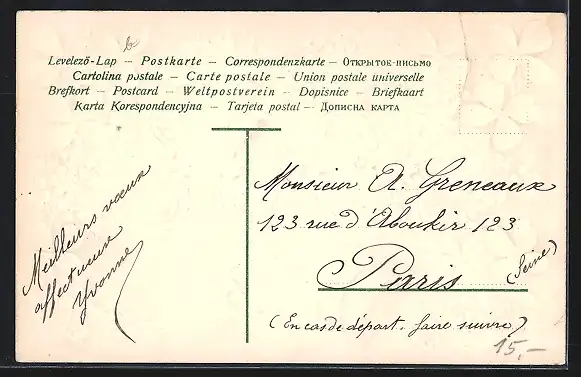 b
Levelező-Lap – Postkarte – Correspondenzkarte – Открытое-письмо
Cartolina postale – Carte postale – Union postale universelle
Brefkort – Postcard – Weltpostverein – Dopisnice – Briefkaart
Karta Korespondencyjna – Tarjeta postal – Дописна карта
Meilleurs vœux
affectueux
Yvonne
Monsieur A. Greneaux
123 rue d'Aboukir 123
Paris
(Seine)
(En cas de départ. faire suivre)
15,–